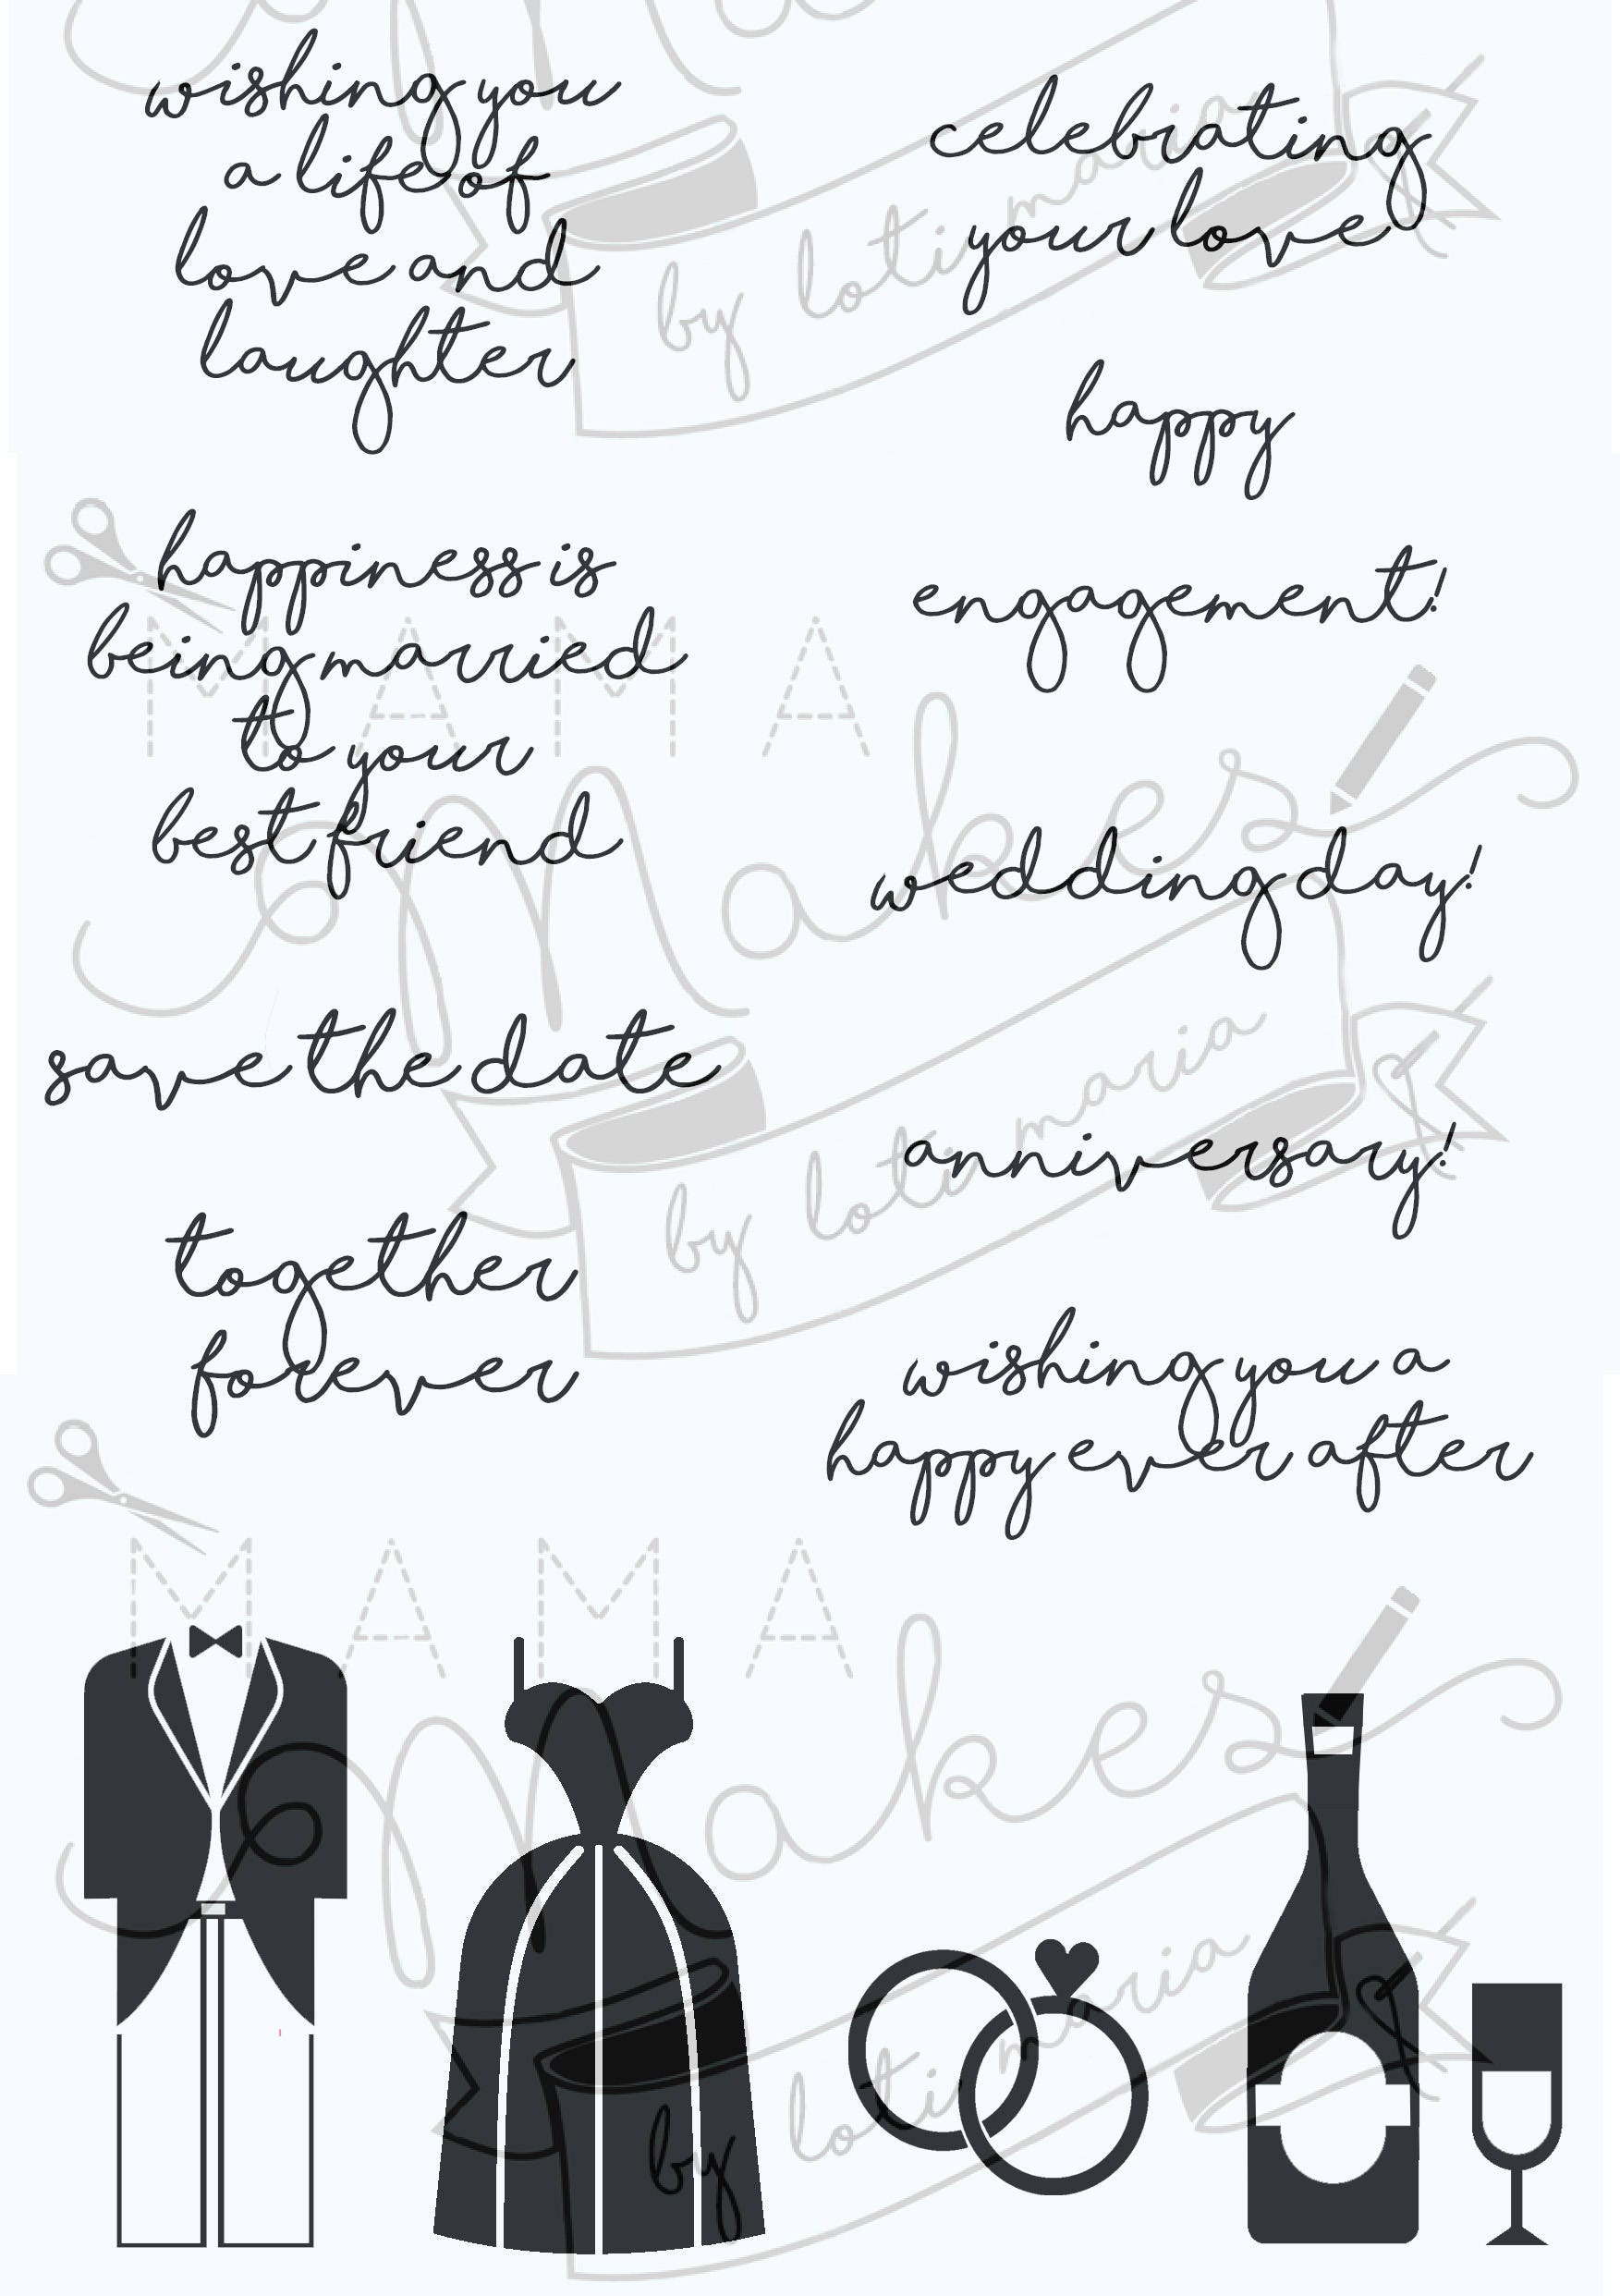 wishing you
a life of
love and
laughter
happiness is
being married
to your
best friend
save the date
together
forever
celebrating
your love
happy
engagement!
wedding day!
anniversary!
wishing you a
happy ever after
by loti maria
MAMA
Makes
by loti maria
MAMA
Makes
by loti maria